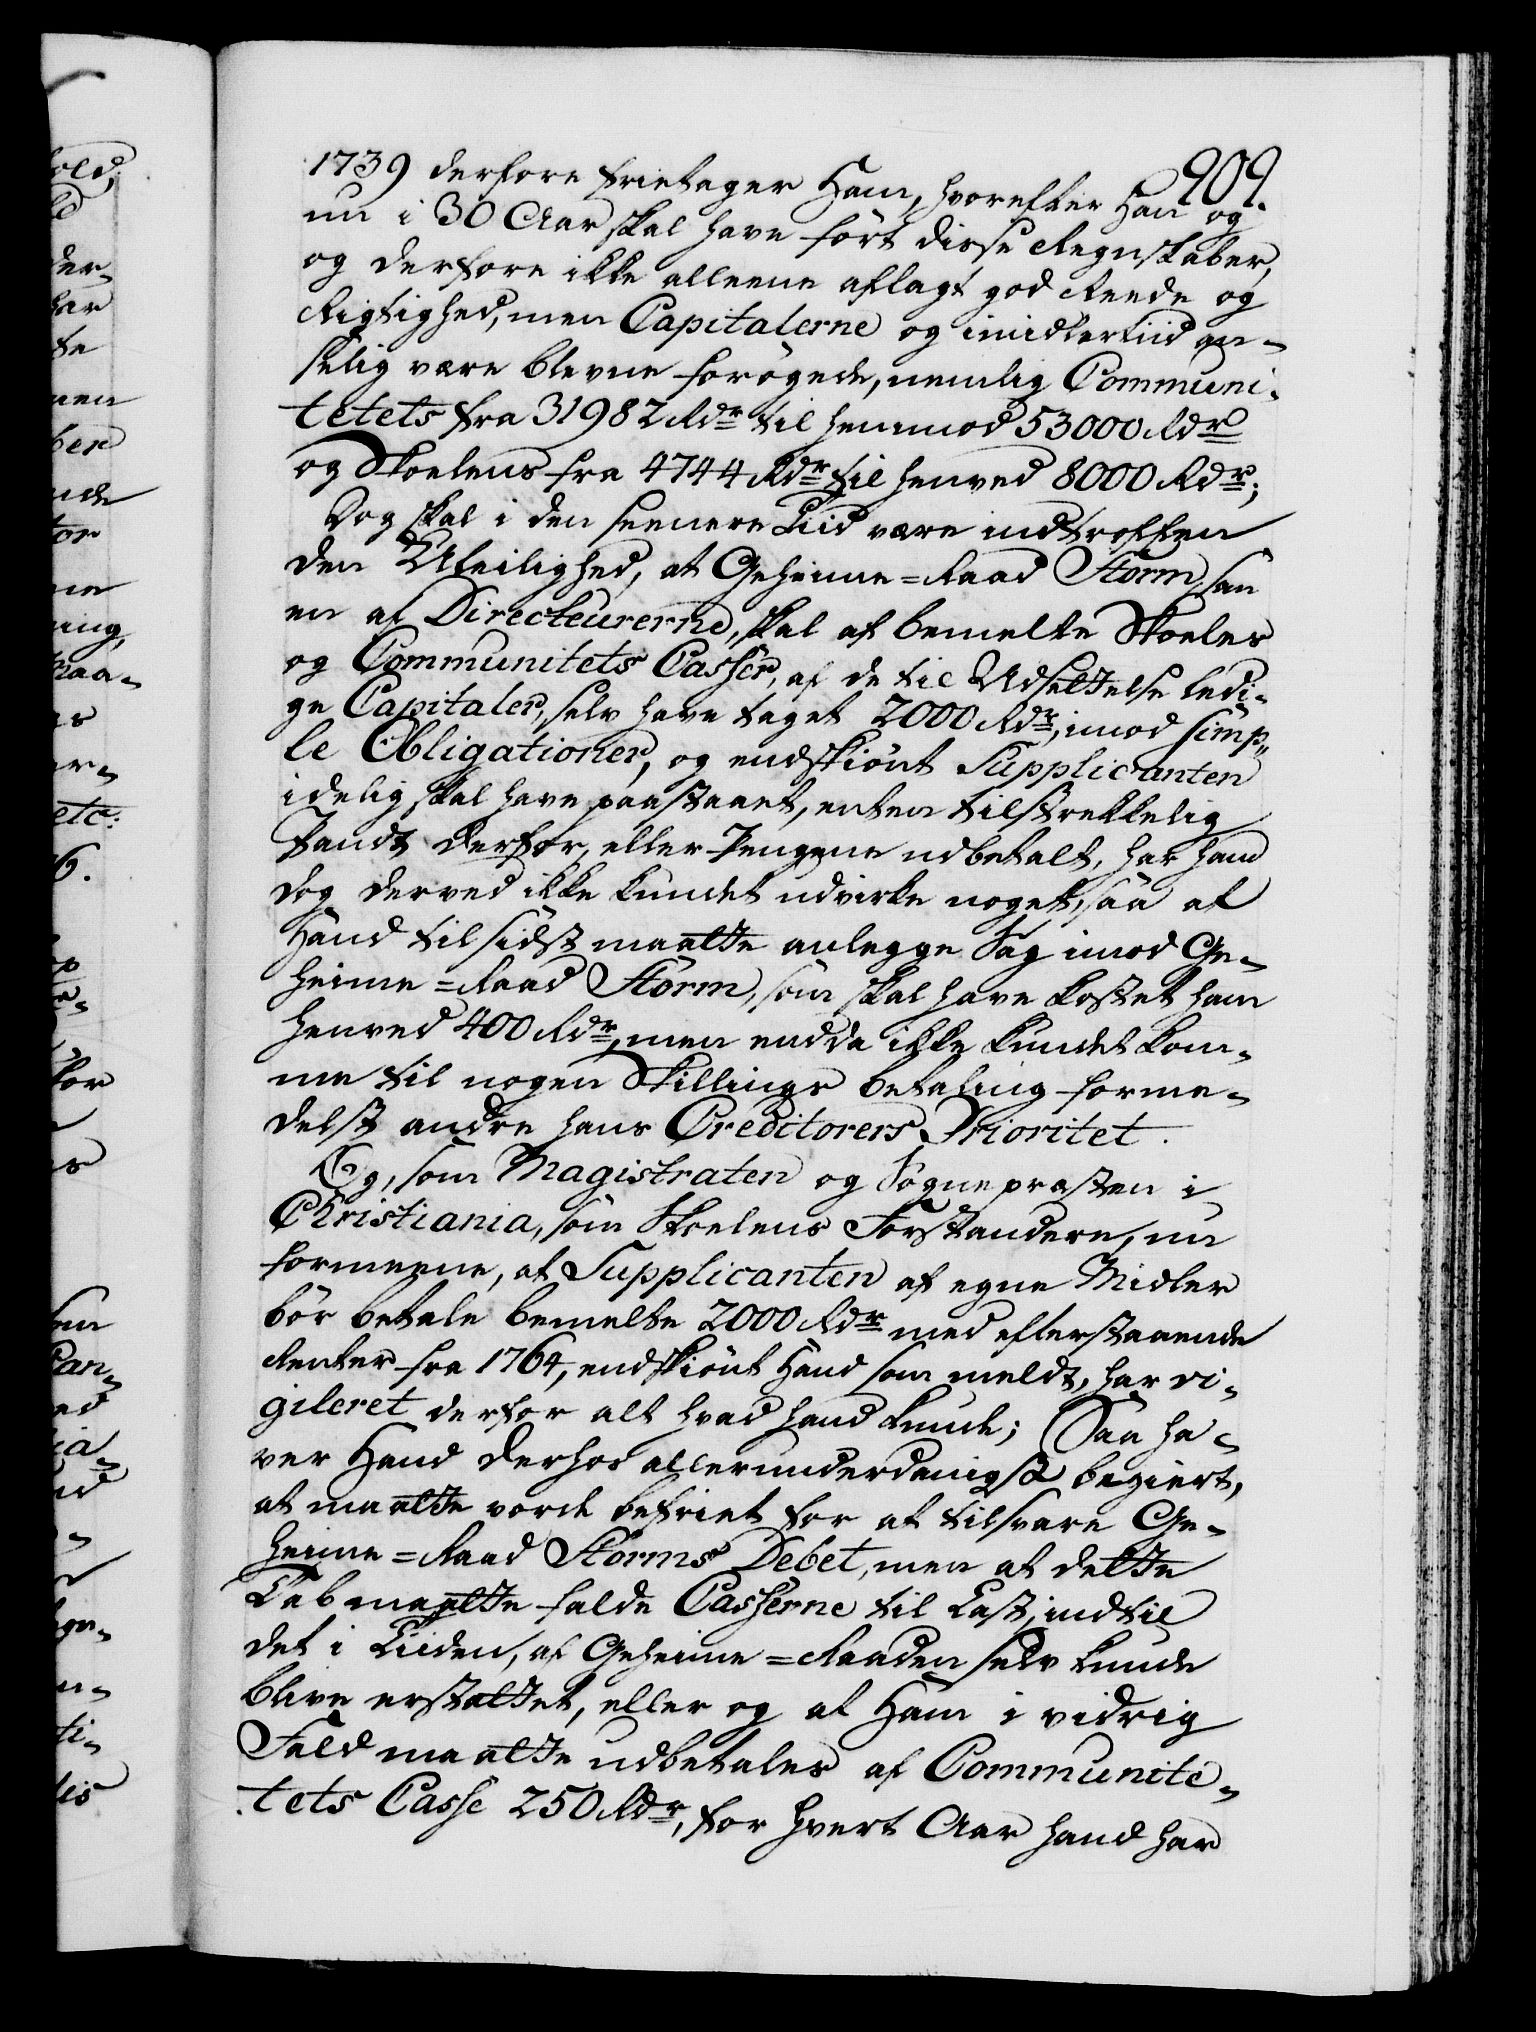 909.
1739 derfore frietager Ham, hvorefter Han og
nu i 30 Aar skal have ført disse Regnskaber,
og derfore ikke alleene aflagt god Reede og
Rigtighed, men Capitalerne og imidlertiid an-
selig være blevne forøgede, nemlig Communi-
tetets fra 31982 Rdr til henimod 53000 Rdr
og Skoelens fra 4744 Rdr til henved 8000 Rdr;
Dog skal i den seenere Tiid være indtroffen
den Uleilighed, at Geheime=Raad Storm, som
en af Directeurerne, skal af bemelte Skoeles
og Communitets Casser, af de til Udsettelse ledi-
ge Capitaler, selv have taget 2000 Rdr, imod simp-
le Obligationer, og endskiønt Supplicanten
idelig skal have paastaaet, enten tilstrekkelig
Pandt derfor, eller Pengene udbetalt, har hand
dog derved ikke kundet udvirke noget, saa at
Hand til sidst maatte anlegge Sag imod Ge-
heime=Raad Storm, som skal have kostet ham
henved 400 Rdr, men endda ikke kundet kom-
me til nogen Skillings betaling forme-
delst andre hans Creditorers Prioritet.
Og, som Magistraten og Sognepræsten i
Christiania, som Skoelens Forstandere, nu
formeene, at Supplicanten af egne Midler
bør betale bemelte 2000 Rdr med efterstaaende
Renter fra 1764, endskiønt Hand som meldt, har vi-
gileret derfor alt hvad hand kunde; Saa ha-
ver Hand derhos allerunderdanigst begiert,
at maatte vorde befriet for at tilsvare Ge-
heime=Raad Storms Debet, men at dette
Tab maatte falde Casserne til Last, indtil
det i Tiiden, af Geheime=Raaden selv kunde
blive erstattet, eller og at Ham i vidrig
Fald maatte udbetales af Communite-
tets Casse 250 Rdr, for hvert Aar hand har